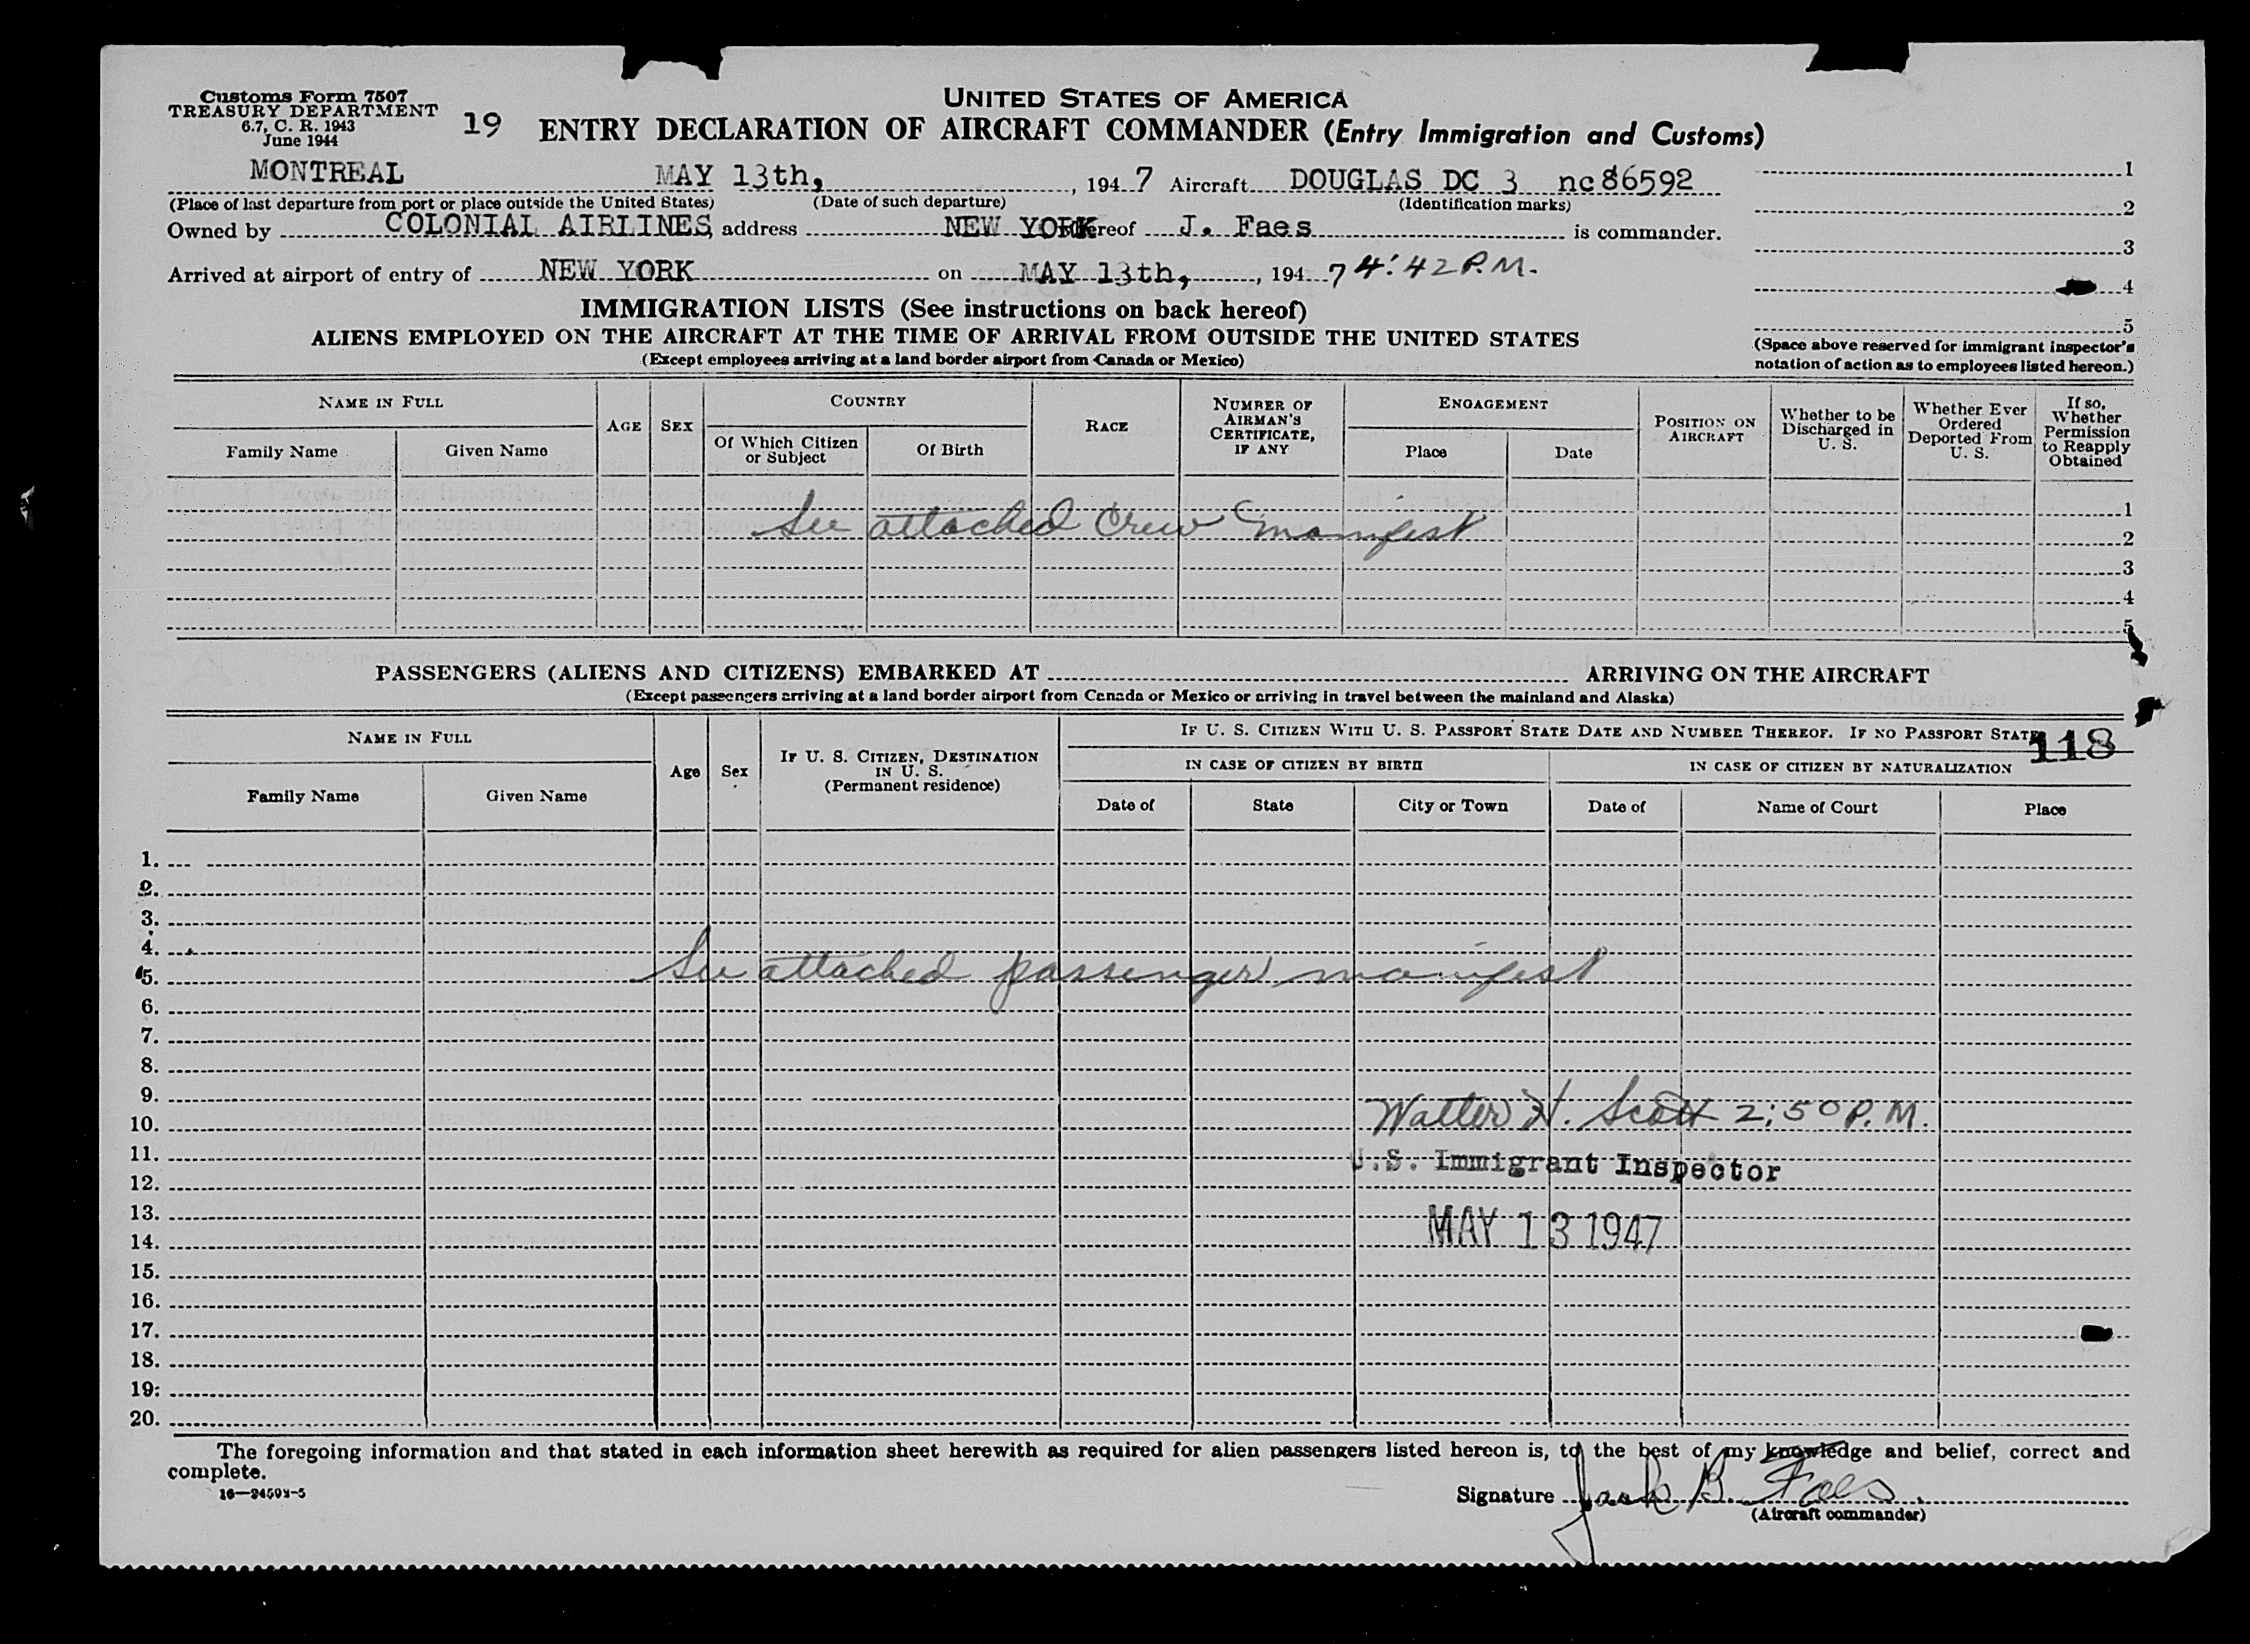 Customs Form 7507
TREASURY DEPARTMENT
6.7, C. R. 1943
June 1944
19
UNITED STATES OF AMERICA
ENTRY DECLARATION OF AIRCRAFT COMMANDER (Entry Immigration and Customs)
MONTREAL MAY 13th, , 1947 Aircraft DOUGLAS DC 3 nc86592
(Place of last departure from port or place outside the United States) (Date of such departure) (Identification marks)
Owned by COLONIAL AIRLINES, address NEW YORK hereof J. Faes is commander.
Arrived at airport of entry of NEW YORK on MAY 13th, , 1947 4:42 P.M.
1
2
3
4
5
(Space above reserved for immigrant inspector's
notation of action as to employees listed hereon.)
IMMIGRATION LISTS (See instructions on back hereof)
ALIENS EMPLOYED ON THE AIRCRAFT AT THE TIME OF ARRIVAL FROM OUTSIDE THE UNITED STATES
(Except employees arriving at a land border airport from Canada or Mexico)
NAME IN FULL
Family Name
Given Name
AGE
SEX
COUNTRY
Of Which Citizen
or Subject
Of Birth
RACE
NUMBER OF
AIRMAN'S
CERTIFICATE,
IF ANY
ENGAGEMENT
Place
Date
POSITION ON
AIRCRAFT
Whether to be
Discharged in
U. S.
Whether Ever
Ordered
Deported From
U. S.
If so,
Whether
Permission
to Reapply
Obtained
1
See attached Crew Manifest
2
3
4
5
PASSENGERS (ALIENS AND CITIZENS) EMBARKED AT ARRIVING ON THE AIRCRAFT
(Except passengers arriving at a land border airport from Canada or Mexico or arriving in travel between the mainland and Alaska)
NAME IN FULL
Family Name
Given Name
Age
Sex
IF U. S. CITIZEN, DESTINATION
IN U. S.
(Permanent residence)
IF U. S. CITIZEN WITH U. S. PASSPORT STATE DATE AND NUMBER THEREOF. IF NO PASSPORT STATE
118
IN CASE OF CITIZEN BY BIRTH
IN CASE OF CITIZEN BY NATURALIZATION
Date of
State
City or Town
Date of
Name of Court
Place
1.
2.
3.
4.
5. See attached passenger manifest
6.
7.
8.
9.
10. Walter H. Scott 2:50 P.M.
11. U.S. Immigrant Inspector
12.
13. MAY 13 1947
14.
15.
16.
17.
18.
19.
20.
The foregoing information and that stated in each information sheet herewith as required for alien passengers listed hereon is, to the best of my knowledge and belief, correct and
complete.
16—24593-5
Signature Jack B. Faes
(Aircraft commander)